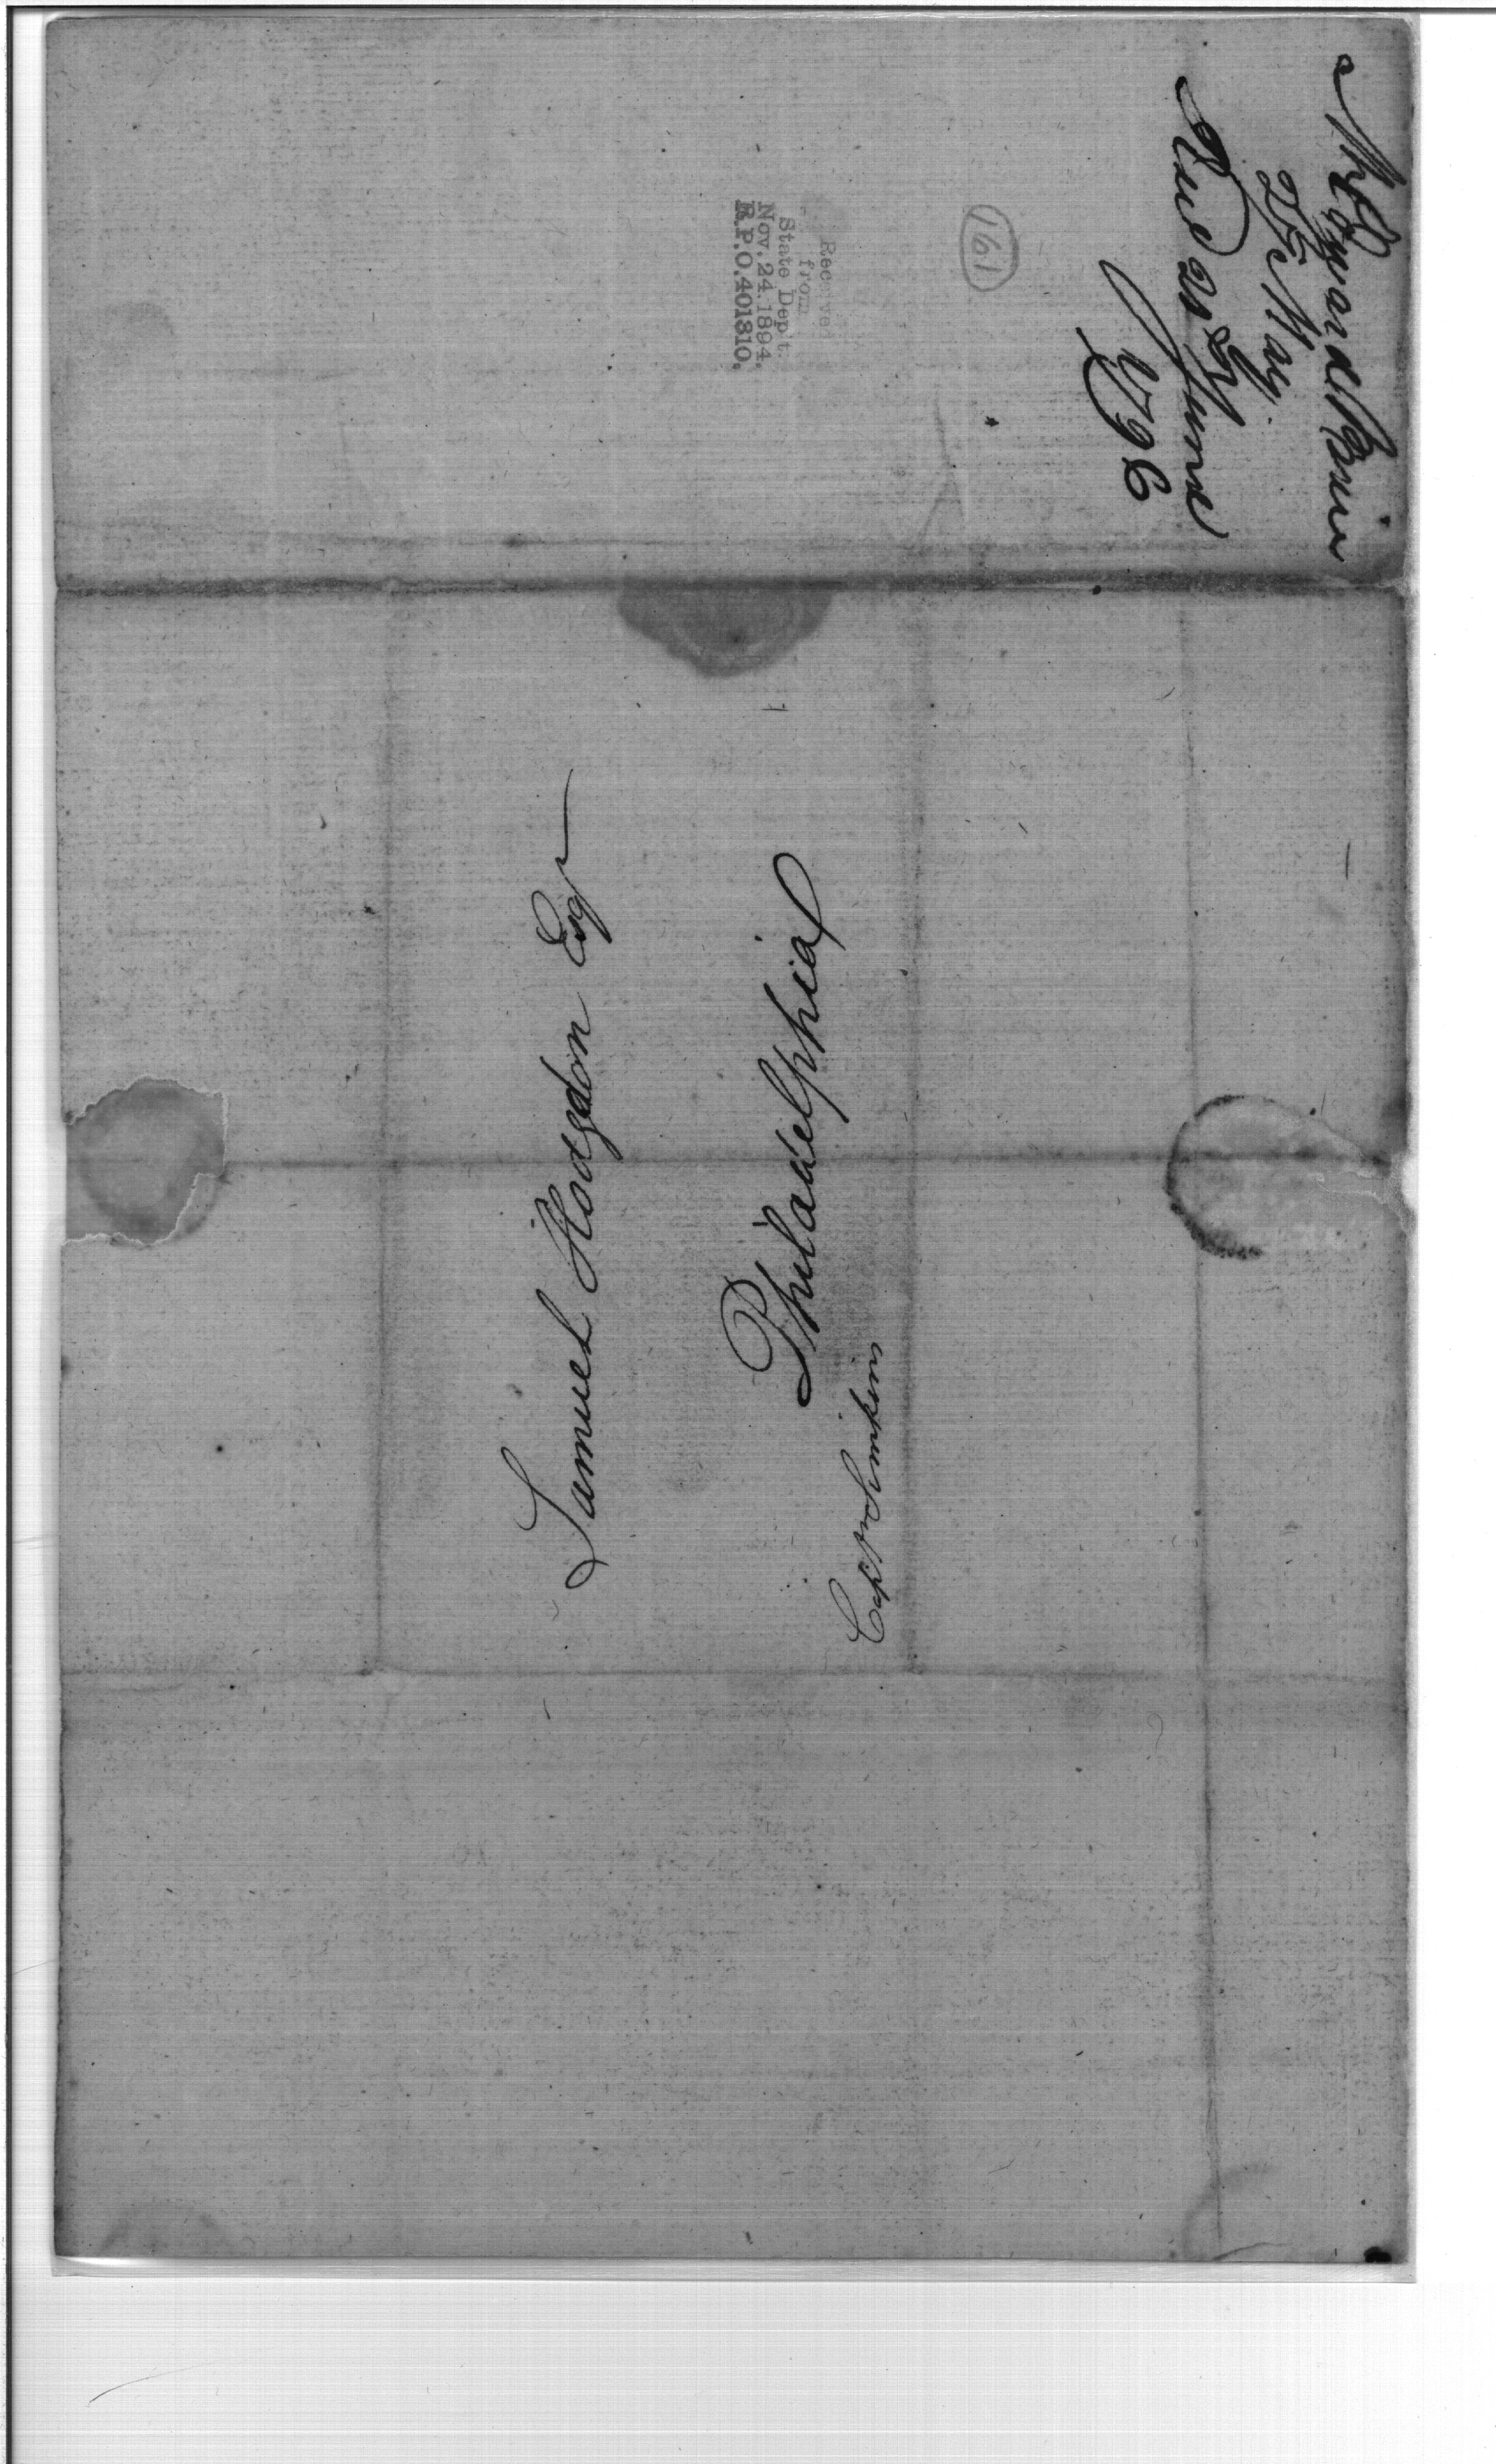 Mr Edward
25 May.
21st June
1796
161
Received
from
State Dep't.
Nov. 24. 1894.
R.P.O. 401310.
Samuel Hodgdon Esqr
Philadelphia
Capt Simkins